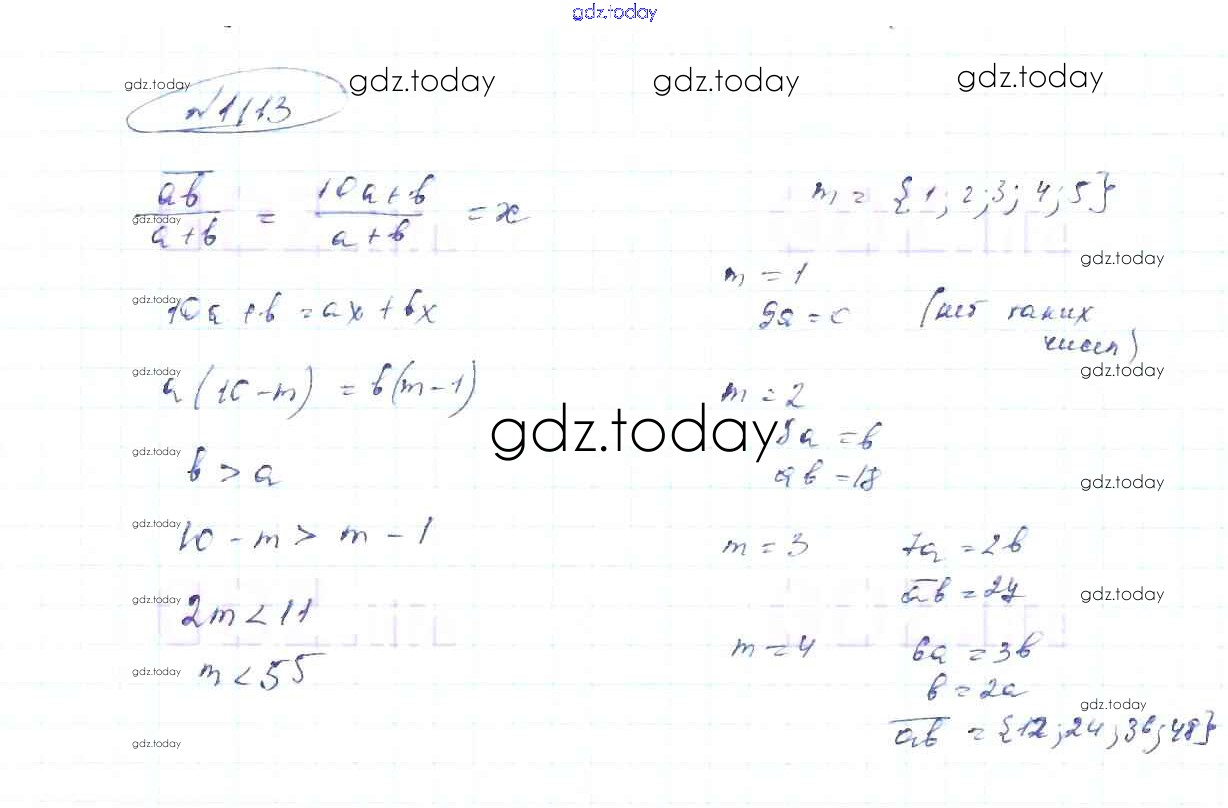 gdz.today
gdz.today gdz.today gdz.today gdz.today
№1113
ab/(a+b) = (10a+b)/(a+b) = x
gdz.today
gdz.today
10a+b = ax+bx
gdz.today
a(10-m) = b(m-1)
gdz.today
b > a
gdz.today
10-m > m-1
gdz.today
2m < 11
gdz.today
m < 5 5
gdz.today
gdz.today
m = {1; 2; 3; 4; 5}
gdz.today
m = 1
9a = 0 (нет таких
чисел)
gdz.today
m = 2
8a = b
ab = 18
gdz.today
gdz.today
m = 3 7a = 2b
ab = 27
gdz.today
m = 4 6a = 3b
b = 2a
gdz.today
ab = {12; 24; 36; 48}